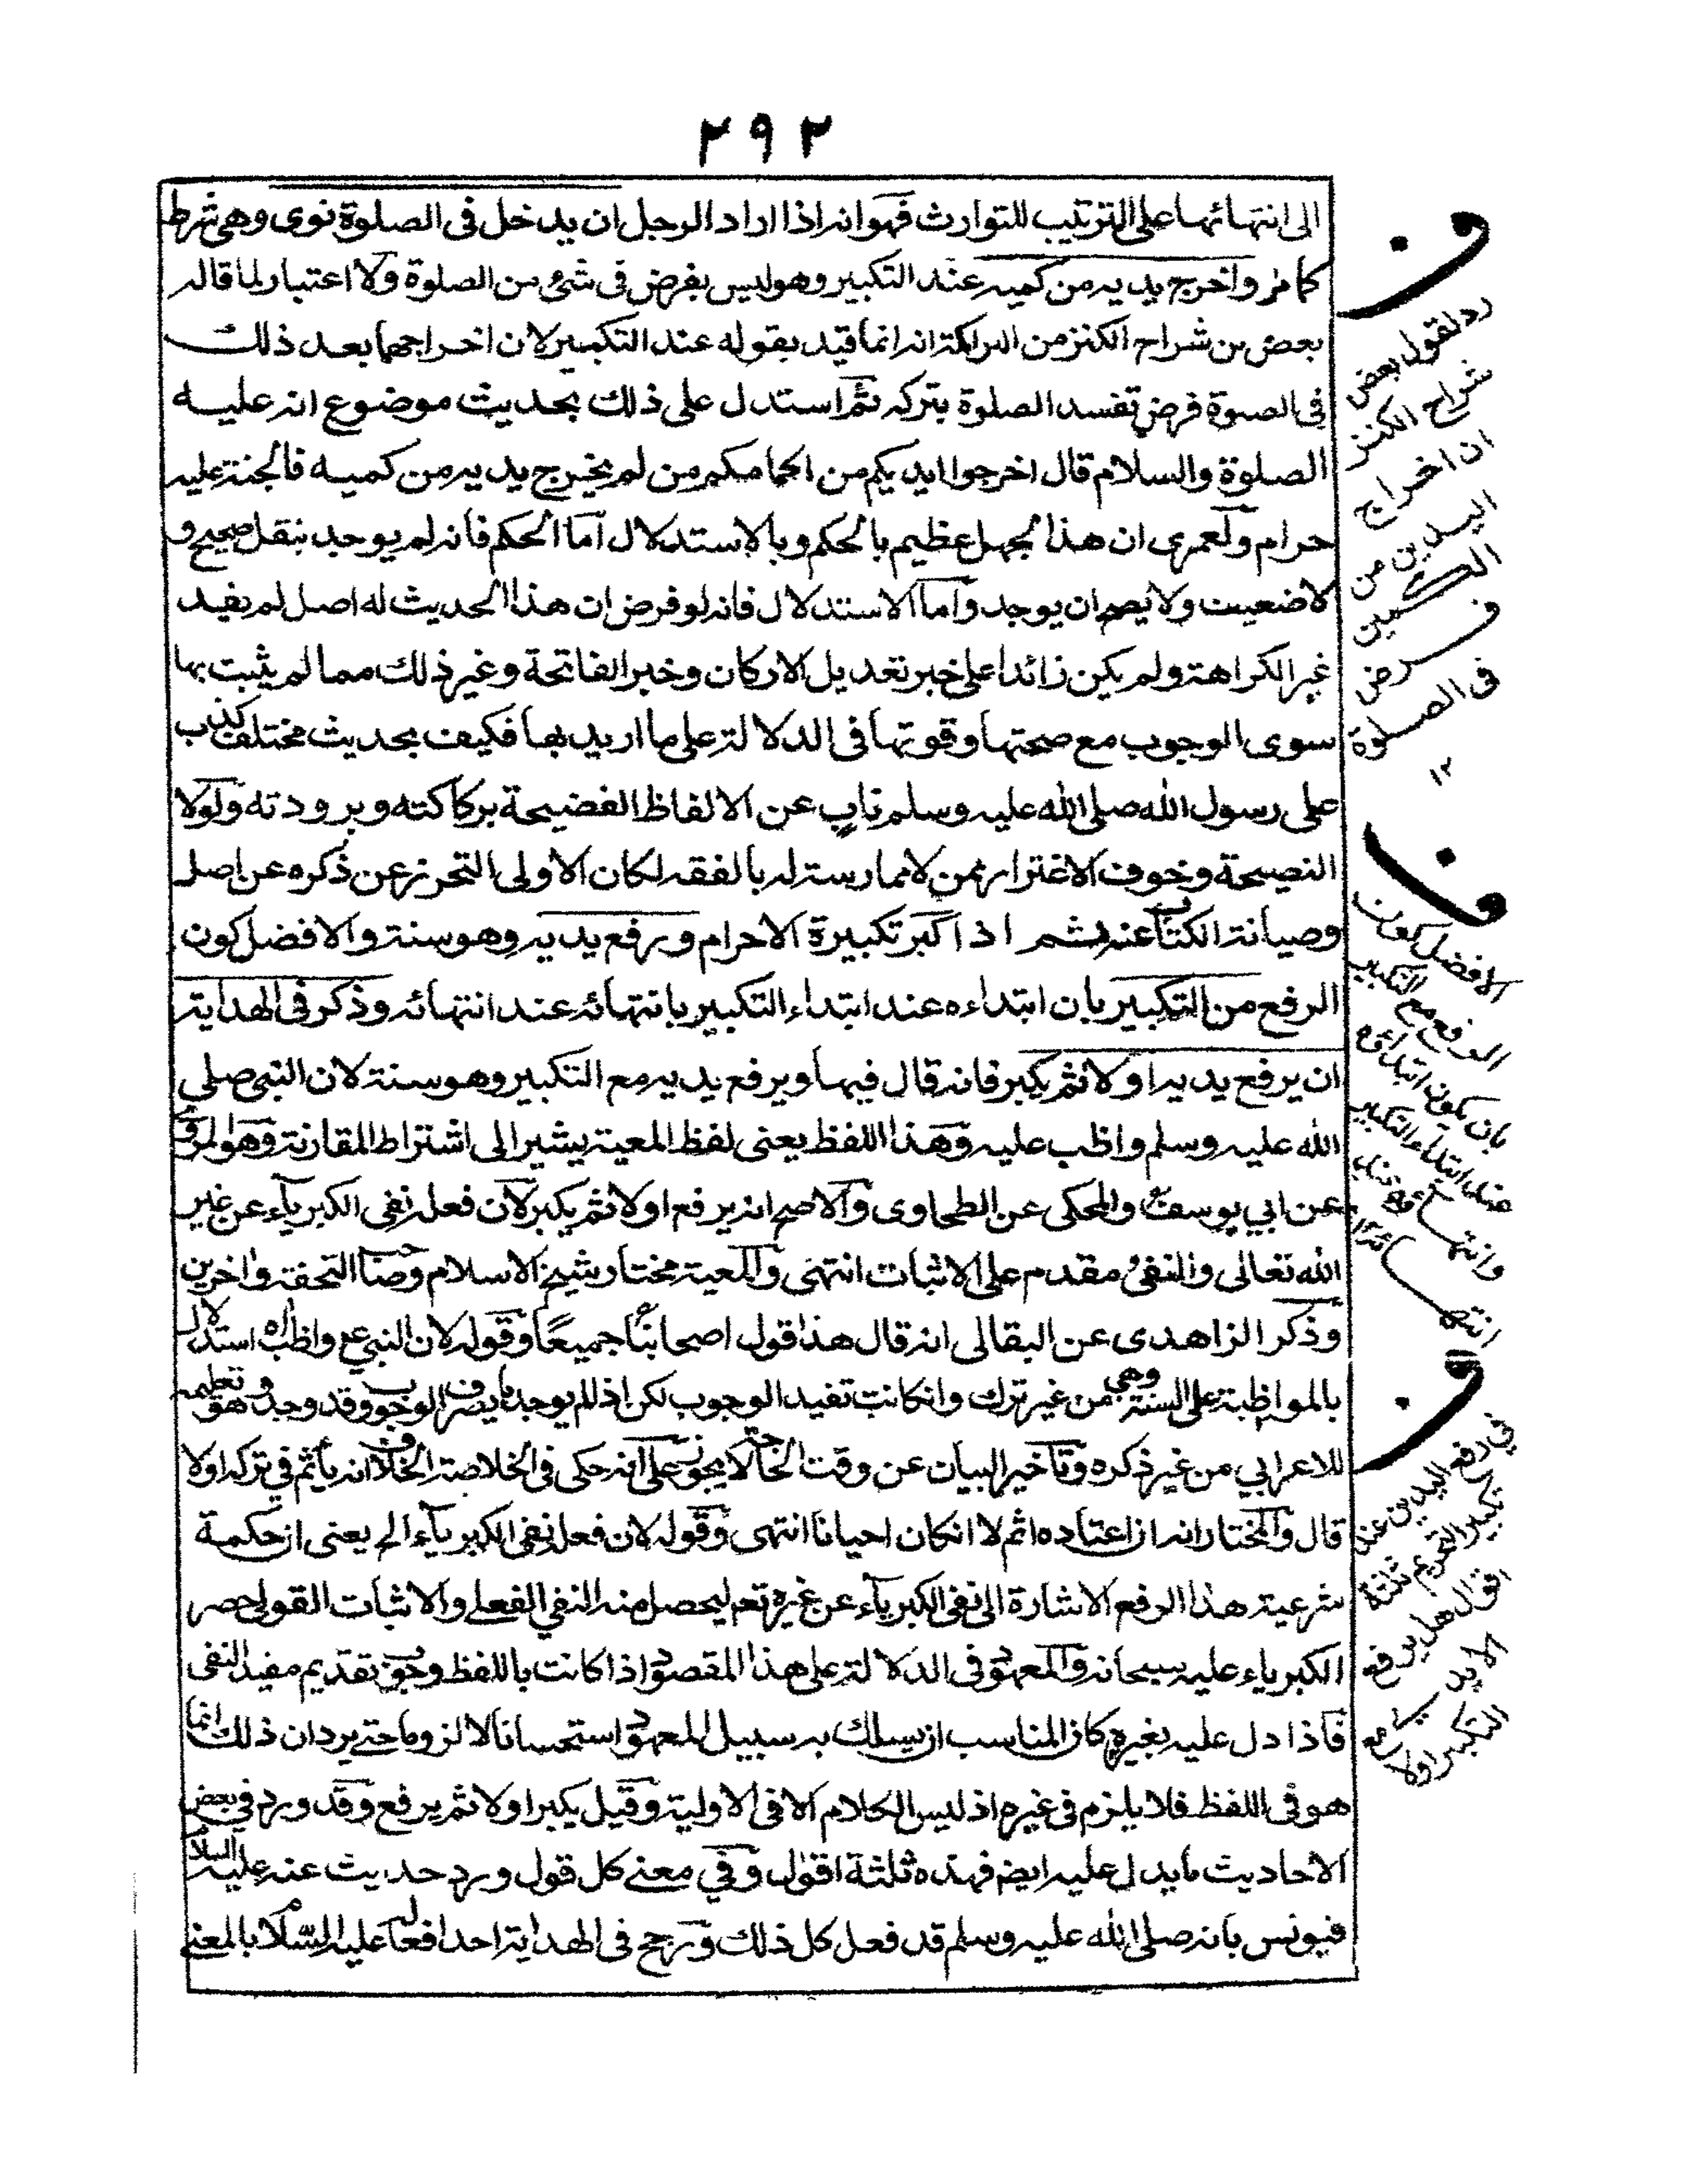 ٢٩٢
الى انتهائها على الترتيب للتوارث فهو انه اذا اراد الرجل ان يدخل فى الصلوة نوى وهى شرط
كما مر واخرج يديه من كميه عند التكبير وهو ليس بفرض فى شئ من الصلوة ولا اعتبار لما قاله
بعض من شراح الكنز من انه انما قيد بقوله عند التكبير لان اخراجهما بعد ذلك
فى الصوة فرض تفسد الصلوة بتركه ثم استدل على ذلك بحديث موضوع انه عليه
الصلوة والسلام قال اخرجوا ايديكم من اكمامكم من لم يخرج يديه من كميه فالجنة عليه
حرام ولعمرى ان هذا لجهل عظيم بالحكم وبالاستدلال اما الحكم فانه لم يوجد بنقل صحيح و
لا ضعيف ولا يصح ان يوجد واما الاستدلال فانه لو فرض ان هذا الحديث له اصل لم يفيد
غير الكراهة ولم يكن زائدا على خبر تعديل الاركان وخبر الفاتحة وغير ذلك مما لم يثبت بها
سوى الوجوب مع صحتها وقوتها فى الدلالة على ما اريد بها فكيف بحديث مختلف كذب
على رسول الله صلى الله عليه وسلم ناب عن الالفاظ الفضيحة بركاكته وبرودته ولولا
النصيحة وخوف الاغترار ممن لا ممارسة له بالفقه لكان الاولى التحرز عن ذكره عن اصل
وصيانة الكتاب عنه ثم اذا كبر تكبيرة الاحرام ورفع يديه وهو سنة والافضل كون
الرفع من التكبير بان ابتداءه عند ابتداء التكبير بانتهائه عند انتهائه وذكر فى الهداية
ان يرفع يديه اولا ثم يكبر فانه قال فيها ويرفع يديه مع التكبير وهو سنة لان النبى صلى
الله عليه وسلم واظب عليه وهذا اللفظ يعنى لفظ المعية يشير الى اشتراط المقارنة وهو المروى
عن ابي يوسف والمحكى عن الطحاوى والاصح انه يرفع اولا ثم يكبر لان فعله نفى الكبرياء عن غير
الله تعالى والنفى مقدم على الاثبات انتهى والمعية مختار شيخ الاسلام وصاحب التحفة واخرين
وذكر الزاهدى عن البقالى انه قال هذا قول اصحابنا جميعًا وقوله لان النبي ع واظب استدلال
بالمواظبة على السنة وهى من غير ترك وان كانت تفيد الوجوب لكن اذا لم يوجد ما يصرف الوجوب وقد وجد وهو تعليمه
للاعرابي من غير ذكره وتأخير البيان عن وقت الحاجة لا يجوز على انه حكى فى الخلاصة الخلاف انه يأثم في تركه اولا
قال والمختار انه ان اعتاده اثم لا ان كان احيانا انتهى وقوله لان فعله نفى الكبرياء الخ يعنى ان حكمة
شرعية هذا الرفع الاشارة الى نفى الكبرياء عن غيره تعم ليحصل منه النفي الفعلى والاثبات القولى حصر
الكبرياء عليه سبحانه والمعهود فى الدلالة على هذا المقصود اذا كانت باللفظ وجوب تقديم مفيد النفى
فاذا دل عليه بغيره كان المناسب ان يسلك به سبيل المعهود استحسانا لا لزوما حتى يرد ان ذلك انما
هو فى اللفظ فلا يلزم فى غيره اذ ليس الكلام الا فى الاولية وقيل يكبر اولا ثم يرفع وقد ورد في بعض
الاحاديث ما يدل عليه ايضم فهذه ثلثة اقوال وفي معنى كل قول ورد حديث عنه عليه السلام
فيونس بانه صلى الله عليه وسلم قد فعل كل ذلك ورجح فى الهداية احد افعاله عليه السلام بالمعنى
ف
رد لقول بعض
شراح الكنز
ان اخراج
اليدين من
الكمين
فرض
فى الصلوة
١٢
ف
الافضل كون
الرفع مع التكبير
بان يكون ابتداؤه
عند ابتداء التكبير
وانتهاؤه عند
انتهائه
ف
في رفع اليدين عند
تكبير التحريم ثلثة
اقوال هل يرفع
الايدى مع
التكبير اولا